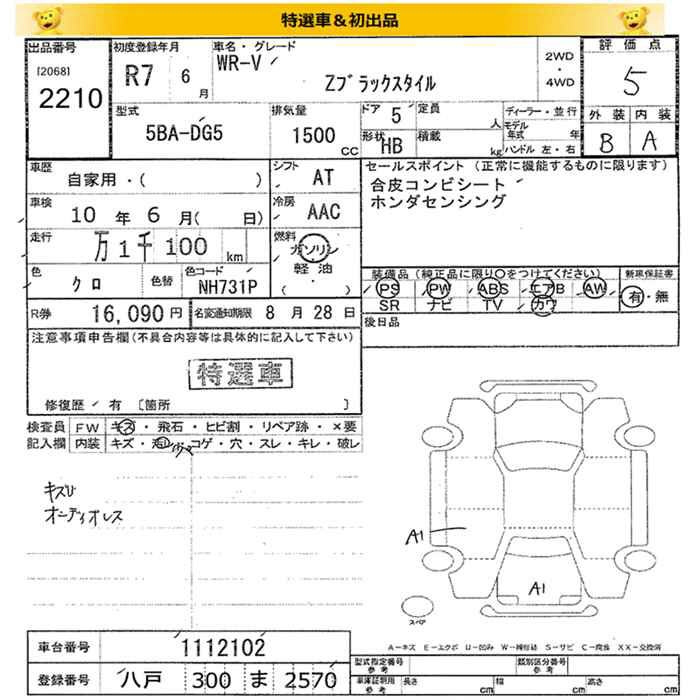 特選車＆初出品
出品番号 初度登録年月 車名・グレード 2WD・4WD 評価点
[2068] R7 6月 WR-V Zブラックスタイル 5
2210
型式 排気量 ドア 5 定員 人 ディーラー・並行 外装 内装
5BA-DG5 1500 CC 形状 HB 積載 kg モデル年式 年 B A
ハンドル 左・右
車歴 シフト セールスポイント (正常に機能するものに限ります)
自家用・( ) AT 合皮コンビシート
車検 冷房 ホンダセンシング
10年 6月( 日) AAC
走行 燃料
万1千100km ガソリン
軽油
( )
色 色替 色コード 装備品(純正品に限り〇をつけてください) 新車保証書
クロ NH731P PS PW ABS エアB AW 有・無
SR ナビ TV カワ
R券 16,090円 名変通知期限 8月28日 後日品
注意事項申告欄(不具合内容等は具体的に記入して下さい)
特選車
修復歴/有 [箇所 ]
検査員 FW キズ・飛石・ヒビ割・リペア跡・×要
記入欄 内装 キズ・汚レ・コゲ・穴・スレ・キレ・破レ
キズU
オーディオレス
A1
A1
スペア
A-キズ E-エクボ U-凹み W-補修跡 S-サビ C-腐食 XX-交換済
車台番号 1112102
登録番号 八戸 300 ま 2570
型式指定番号 参考 類別区分番号 参考
車庫証明用 参考 長さ cm 幅 cm 高さ cm